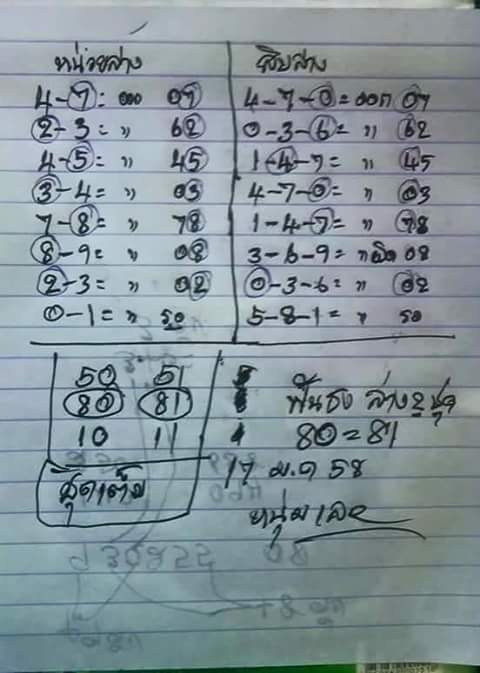 หน่วยล่าง สิบล่าง
4-7= ออก 07 4-7-0=ออก 07
2-3= " 62 0-3-6= " 62
4-5= " 45 1-4-7= " 45
3-4= " 03 4-7-0= " 03
7-8= " 78 1-4-7= " 78
8-9= " 08 3-6-9= " ผิด 08
2-3= " 02 0-3-6= " 02
0-1= " 50 5-8-1= " 50
50 51 5
80 81 ฟันธง ล่าง 2 ชุด
10 11 1 80=81
ชุดเต็ม 17 ม.ค 58
หนุ่มเลย